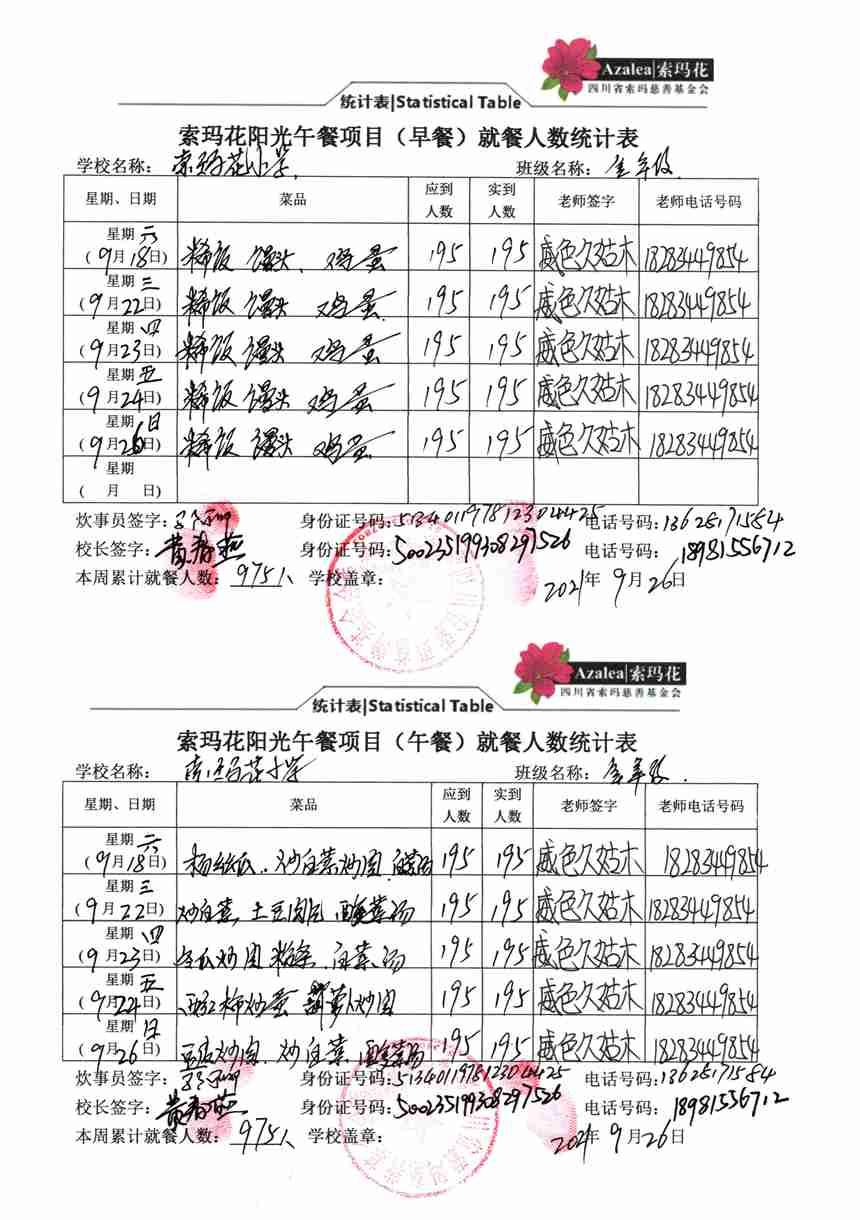 Azalea|索玛花
四川省索玛慈善基金会
统计表|Statistical Table
索玛花阳光午餐项目（早餐）就餐人数统计表
学校名称： 索玛花小学 班级名称： 全年级
星期、日期 菜品 应到人数 实到人数 老师签字 老师电话号码
星期六
（9月18日） 稀饭 馒头、鸡蛋 195 195 18283449854
星期三
（9月22日） 稀饭 馒头 鸡蛋 195 195 18283449854
星期四
（9月23日） 稀饭 馒头 鸡蛋 195 195 18283449854
星期五
（9月24日） 稀饭 馒头 鸡蛋 195 195 18283449854
星期日
（9月26日） 稀饭 馒头 鸡蛋 195 195 18283449854
星期
（ 月 日）
炊事员签字： 身份证号码：513401197812304425 电话号码：13628171584
校长签字：黄春燕 身份证号码：500235199308297526 电话号码： 18981556712
本周累计就餐人数： 975人 学校盖章： 2021年 9月26日
Azalea|索玛花
四川省索玛慈善基金会
统计表|Statistical Table
索玛花阳光午餐项目（午餐）就餐人数统计表
学校名称： 索玛花小学 班级名称： 全年级.
星期、日期 菜品 应到人数 实到人数 老师签字 老师电话号码
星期六
（9月18日） 炒白菜 195 195 18283449854
星期三
（9月22日） 炒白菜, 土豆 酸菜汤 195 195 18283449854
星期四
（9月23日） 冬瓜炒肉 粉条.白菜汤 195 195 18283449854
星期五
（9月24日） 西红柿炒蛋 胡萝卜炒肉 195 195 18283449854
星期日
（9月26日） 炒白菜 酸菜汤 195 195 18283449854
炊事员签字： 身份证号码：513401197812304425 电话号码：13628171584
校长签字：黄春燕 身份证号码：500235199308297526 电话号码： 18981556712
本周累计就餐人数： 975人 学校盖章： 2021年 9月26日